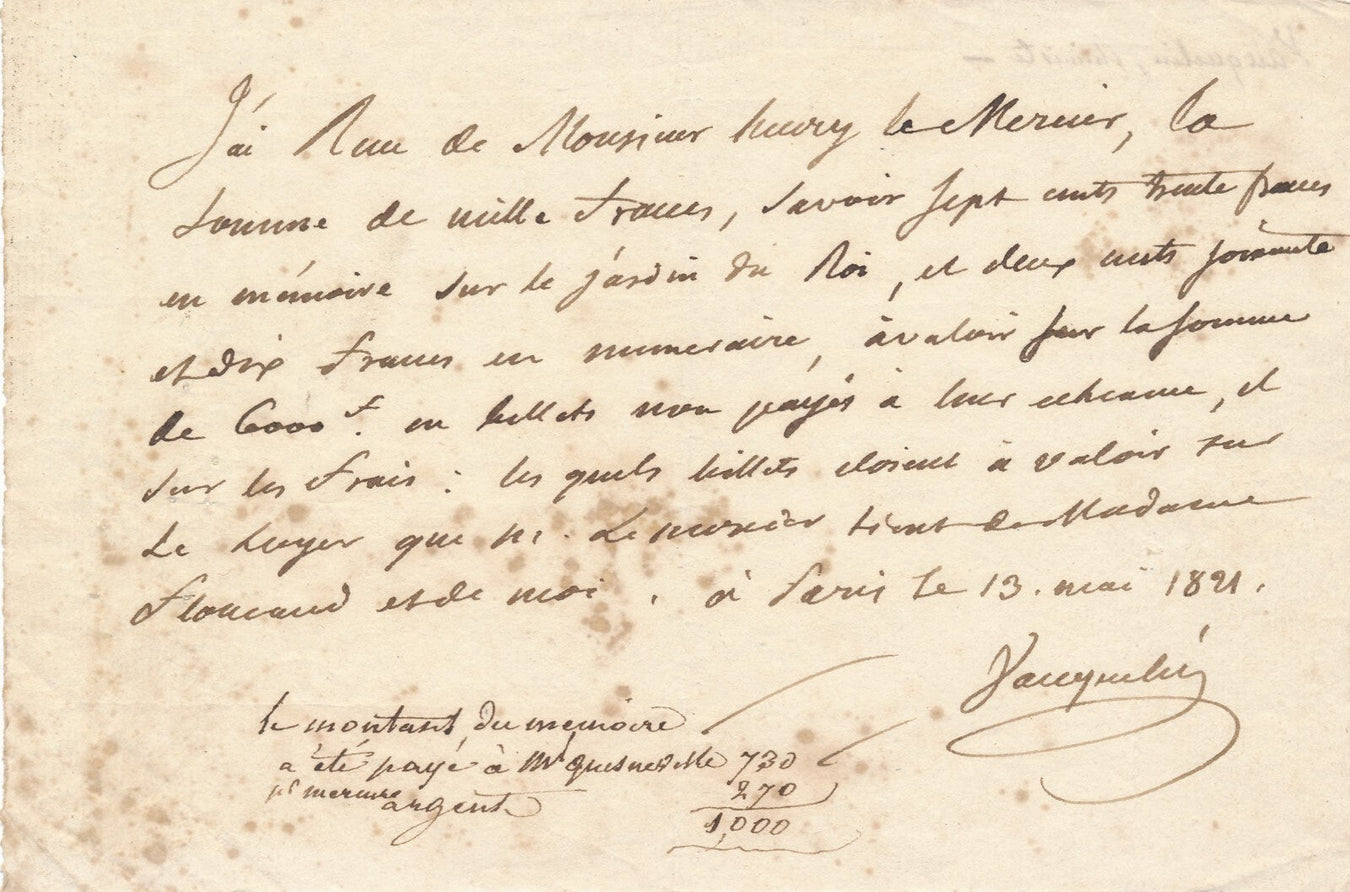 J'ai Recu de Monsieur henry le Mercier, la
somme de mille francs, savoir sept cents trente francs
en mémoire sur le jardin du Roi, et deux cents soixante
et dix francs en numeraire, à valoir sur la somme
de 6000 f. en billets non payés à leur echeance, et
sur les frais : les quels billets etoient à valoir sur
Le Loyer que M. Le mercier tient de Madame
et de moi. à Paris le 13. mai 1821.
Vauquelin
le montant du mémoire
a été payé à Mr quesneville 730
pr mercure 270
argent
1,000